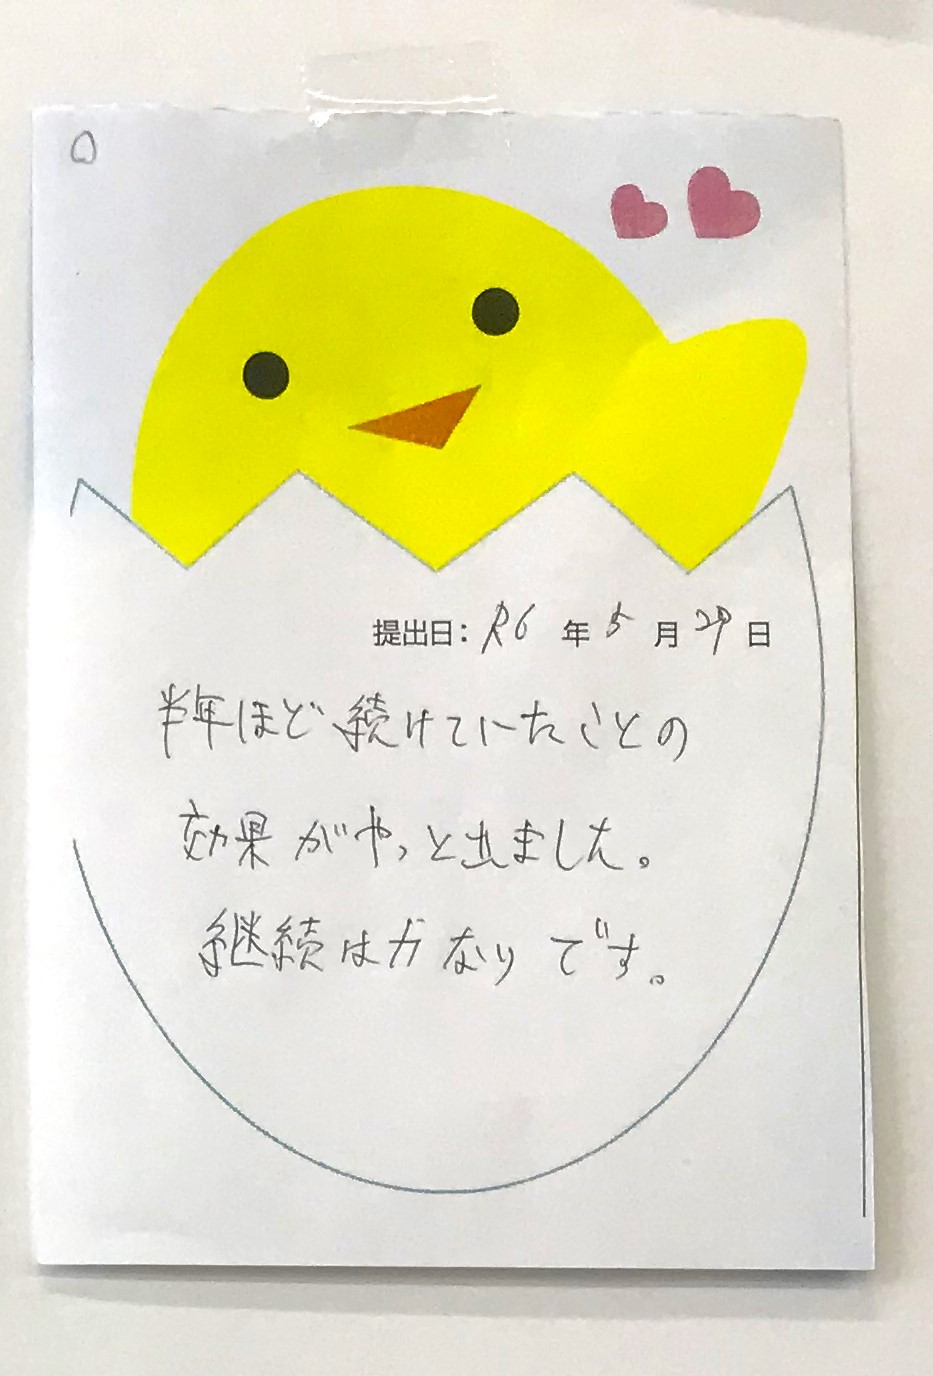 提出日：R6年5月29日
半年ほど続けていたことの
効果がやっと出ました。
継続は力なりです。